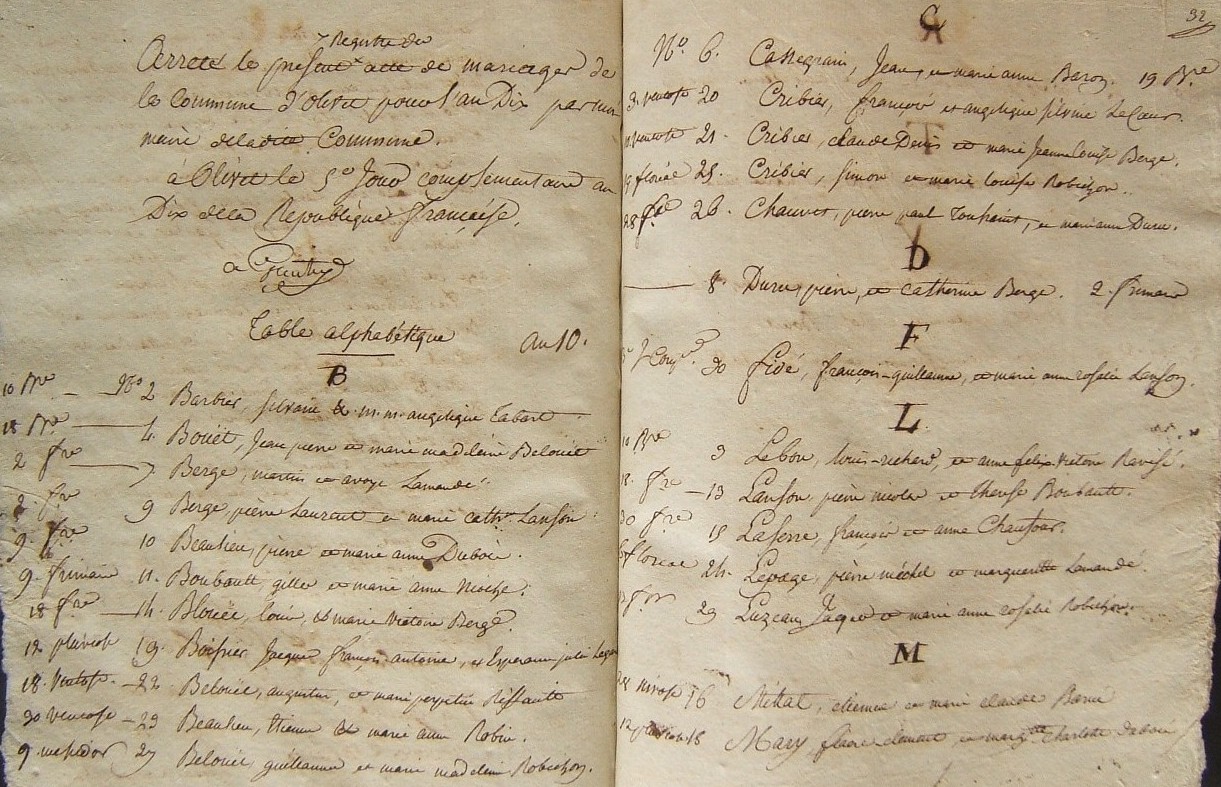 Registre de
Arreté le présent acte de mariages de
la commune d'olivet pour l'an Dix par moi
maire de ladite Commune.
à Olivet le 5e Jour complementaire an
Dix de la Republique française.
Table alphabétique an 10.
B
10 bre No 2 Barbier, silvain & m. m. angelique Tabart
18 bre 4. Bouët, Jean pierre et marie madeleine Belouët
2 fre 7 Berge, martin et avoye Lamandé.
2 fre 9 Berge, pierre Laurent et marie cathne Lanson
9. fre 10 Beaulieu, pierre et marie anne Dubois.
9. frimaire 11. Boubault, gilles et marie anne
18 fre 14. Blouët, louis, & marie Victoire Bergé.
12 pluviose 19. Jacque françois antoine, et Esperance julie
18. Ventose 22 Belouët, augustin, et marie perpetue
30 Ventose 23 Beaulieu, Etienne & marie anne Robin.
9 messidor 27 Belouët, guillaume et marie madelein Robichon.
32
C
No 6. Cassegrain, Jean, et marie anne Baron. 19 Bre
3. ventose 20 Cribier, françois et angelique silvine LeCœur.
ventose 21. Cribier, claude Denis et marie Jeanne louise Berge.
floréal 25. Cribier, simon et marie louise Robichon.
28 fal 26. Chauvet, pierre paul Toussaint, et marianne Duru.
D
8. Duru, pierre, et catherine Berge. 2. frimaire
F
30 fidé, françois-guillaume, et marie anne rosalie Lanson.
L
10 Bre 3 Lebon, louis-richard, et anne felix-victoire Ravisé.
18. fre 13 Lanson, pierre nicolas et therese Boubault.
30 fre 15 Laferre, françois et anne Chaufour.
floreal 24. Lepage, pierre michel et marguerite Lamandé.
29 Luzeau Jaque et marie anne rosalie Robichon.
M
nivose 16 Millat, etienne et marie claude
12 pluviose 18 Mary, clement, et margtte Charlotte